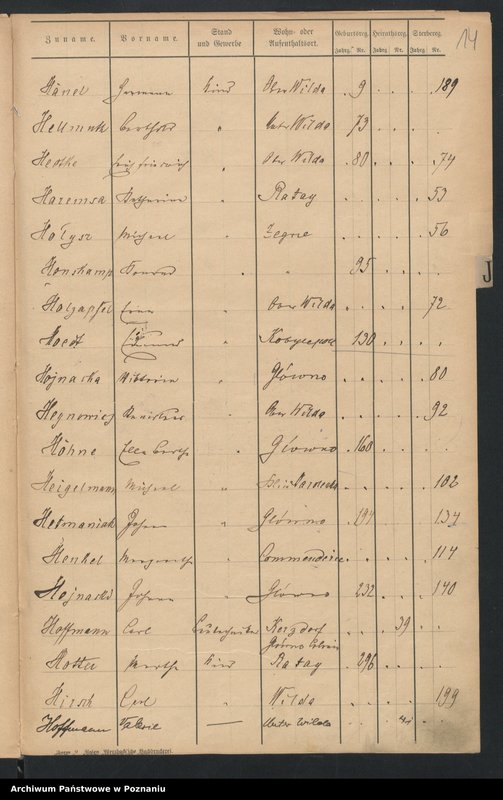 14
Zuname. Vorname. Stand und Gewerbe Wohn- oder Aufenthaltsort. Geburtsreg. Heirathsreg. Sterbereg.
Jahrg. Nr. Jahrg Nr. Jahrg Nr.
Hänel Hermann Kind Ober Wilda 9 189
Hellmuth Berthold " Unter Wilda 73
Hedtke " Ober Wilda 80 74
Haremsa Katharina " Rataj 53
Hołysz Michael " Zegrze 56
Honskamp Konrad " " 95
Holzapfel Erna " Ober Wilda 72
130
Hojnacka Wiktoria " Główno 80
Heynowicz Stanislaus " Ober Wilda 92
Höhne " Główno 160
Heigelmann Michael " 102
Hetmaniak Johann " Główno 194 134
Henkel Margarethe " Commenderie 114
Hojnacki Johann " Główno 232 140
Hoffmann Carl 39
Hotter Martha Kind Rataj 296
Hirsch Carl " Wilda 199
Hoffmann Valerie — Unter Wilda 41
J
Archiwum Państwowe w Poznaniu